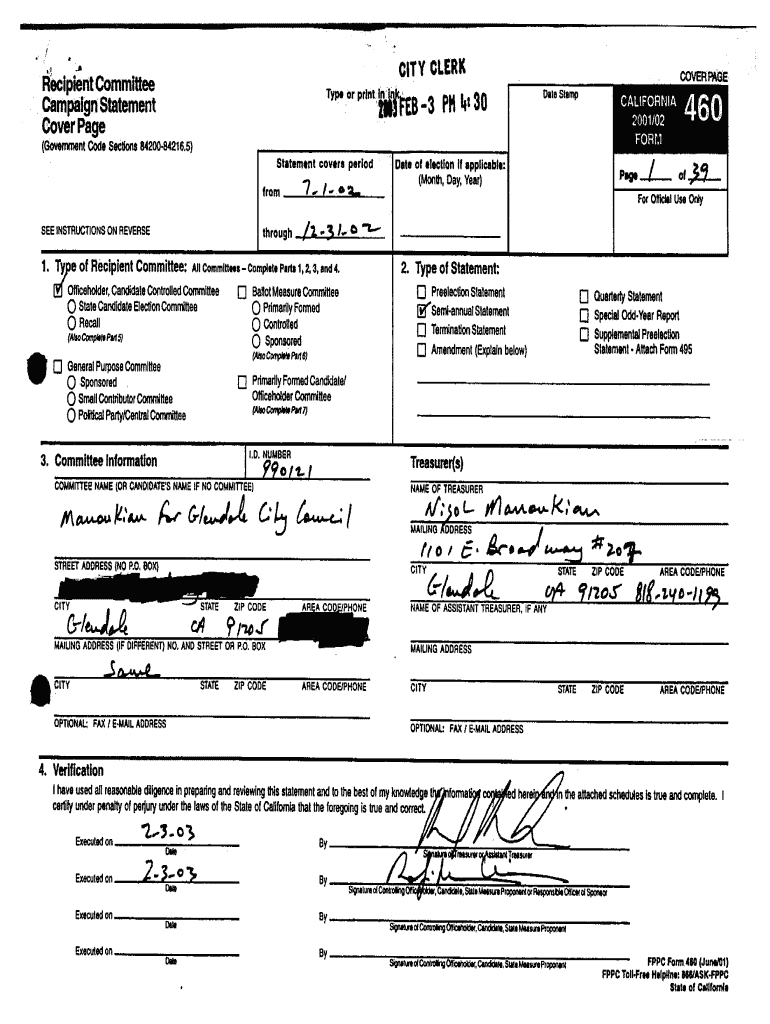 CITY CLERK
Recipient Committee
Campaign Statement
Cover Page
(Government Code Sections 84200-84216.5)
Type or print in ink.
2003 FEB -3 PM 4:30
Date Stamp
COVER PAGE
CALIFORNIA 460
2001/02
FORM
Page 1 of 39
For Official Use Only
Statement covers period
from 7-1-02
through 12-31-02
Date of election if applicable:
(Month, Day, Year)
SEE INSTRUCTIONS ON REVERSE
1. Type of Recipient Committee: All Committees – Complete Parts 1, 2, 3, and 4.
Officeholder, Candidate Controlled Committee
State Candidate Election Committee
Recall
(Also Complete Part 5)
General Purpose Committee
Sponsored
Small Contributor Committee
Political Party/Central Committee
Ballot Measure Committee
Primarily Formed
Controlled
Sponsored
(Also Complete Part 6)
Primarily Formed Candidate/
Officeholder Committee
(Also Complete Part 7)
2. Type of Statement:
Preelection Statement
Semi-annual Statement
Termination Statement
Amendment (Explain below)
Quarterly Statement
Special Odd-Year Report
Supplemental Preelection
Statement - Attach Form 495
3. Committee Information
I.D. NUMBER
990121
COMMITTEE NAME (OR CANDIDATE'S NAME IF NO COMMITTEE)
Manoukian for Glendale City Council
STREET ADDRESS (NO P.O. BOX)
CITY STATE ZIP CODE AREA CODE/PHONE
Glendale CA 91205
MAILING ADDRESS (IF DIFFERENT) NO. AND STREET OR P.O. BOX
Same
CITY STATE ZIP CODE AREA CODE/PHONE
OPTIONAL: FAX / E-MAIL ADDRESS
Treasurer(s)
NAME OF TREASURER
Manoukian
MAILING ADDRESS
1101 E. Broadway #207
CITY STATE ZIP CODE AREA CODE/PHONE
Glendale CA 91205 818-240-1199
NAME OF ASSISTANT TREASURER, IF ANY
MAILING ADDRESS
CITY STATE ZIP CODE AREA CODE/PHONE
OPTIONAL: FAX / E-MAIL ADDRESS
4. Verification
I have used all reasonable diligence in preparing and reviewing this statement and to the best of my knowledge the information contained herein and in the attached schedules is true and complete. I
certify under penalty of perjury under the laws of the State of California that the foregoing is true and correct.
Executed on 2-3-03
Date
By
Signature of Treasurer or Assistant Treasurer
Executed on 2-3-03
Date
By
Signature of Controlling Officeholder, Candidate, State Measure Proponent or Responsible Officer of Sponsor
Executed on
Date
By
Signature of Controlling Officeholder, Candidate, State Measure Proponent
Executed on
Date
By
Signature of Controlling Officeholder, Candidate, State Measure Proponent
FPPC Form 460 (June/01)
FPPC Toll-Free Helpline: 866/ASK-FPPC
State of California